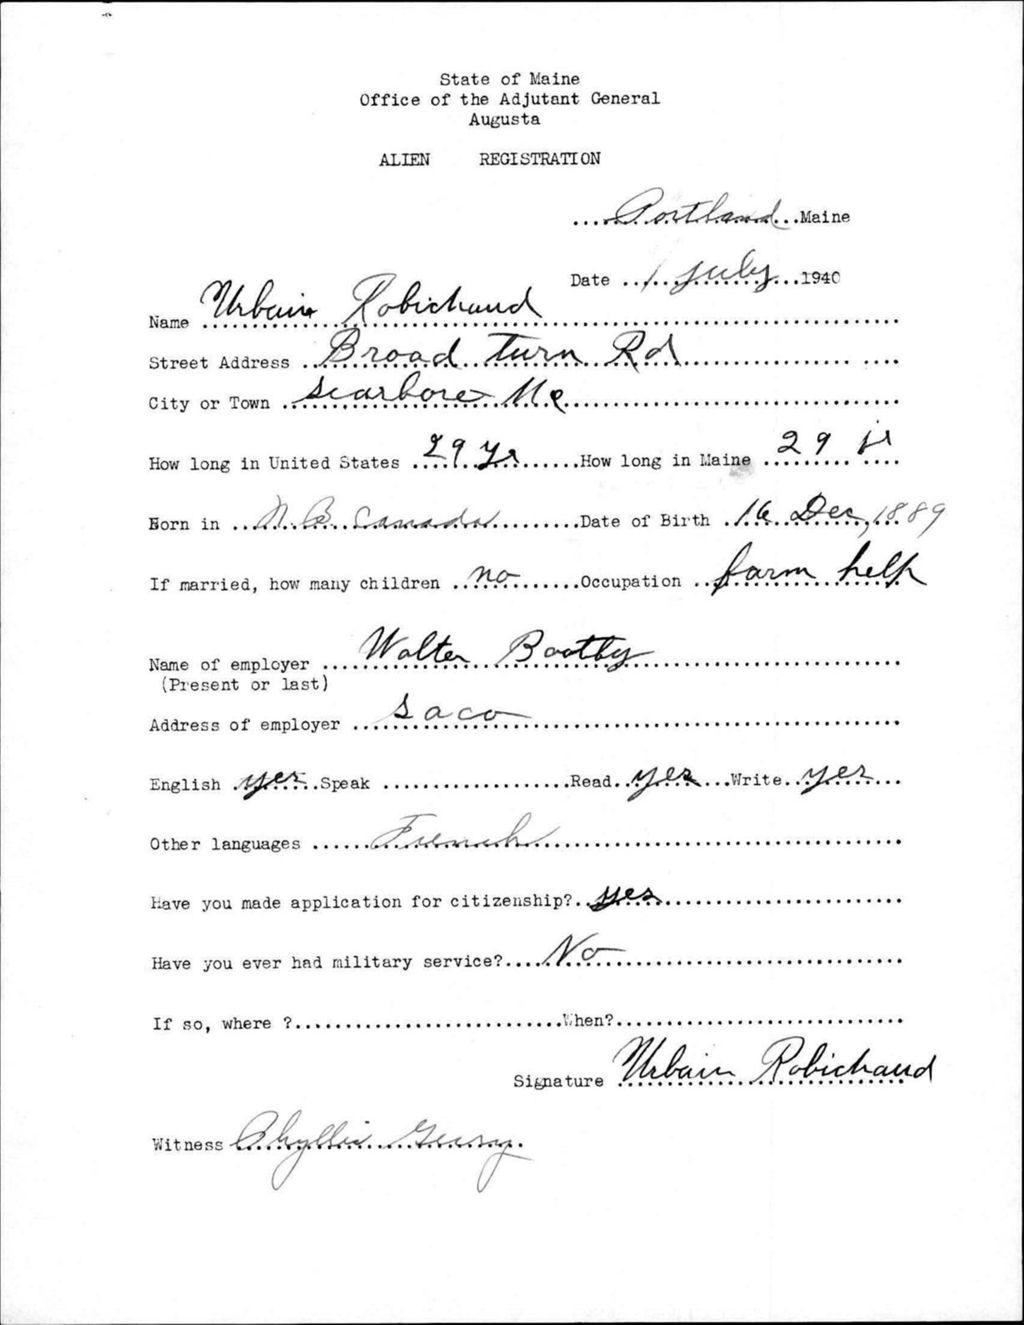 State of Maine
Office of the Adjutant General
Augusta
ALIEN REGISTRATION
Portland Maine
Date 1 July 1940
Name Urbain Robichaud
Street Address Broad Turn Rd
City or Town Scarboro Me
How long in United States 29 yr How long in Maine 29 yr
Born in N.B. Canada Date of Birth 16 Dec, 1889
If married, how many children no Occupation farm help
Name of employer Walter Bootby
(Present or last)
Address of employer Saco
English yes Speak Read yes Write yes
Other languages French
Have you made application for citizenship? yes
Have you ever had military service? No
If so, where ? When?
Signature Urbain Robichaud
Witness Phyllis Geary.